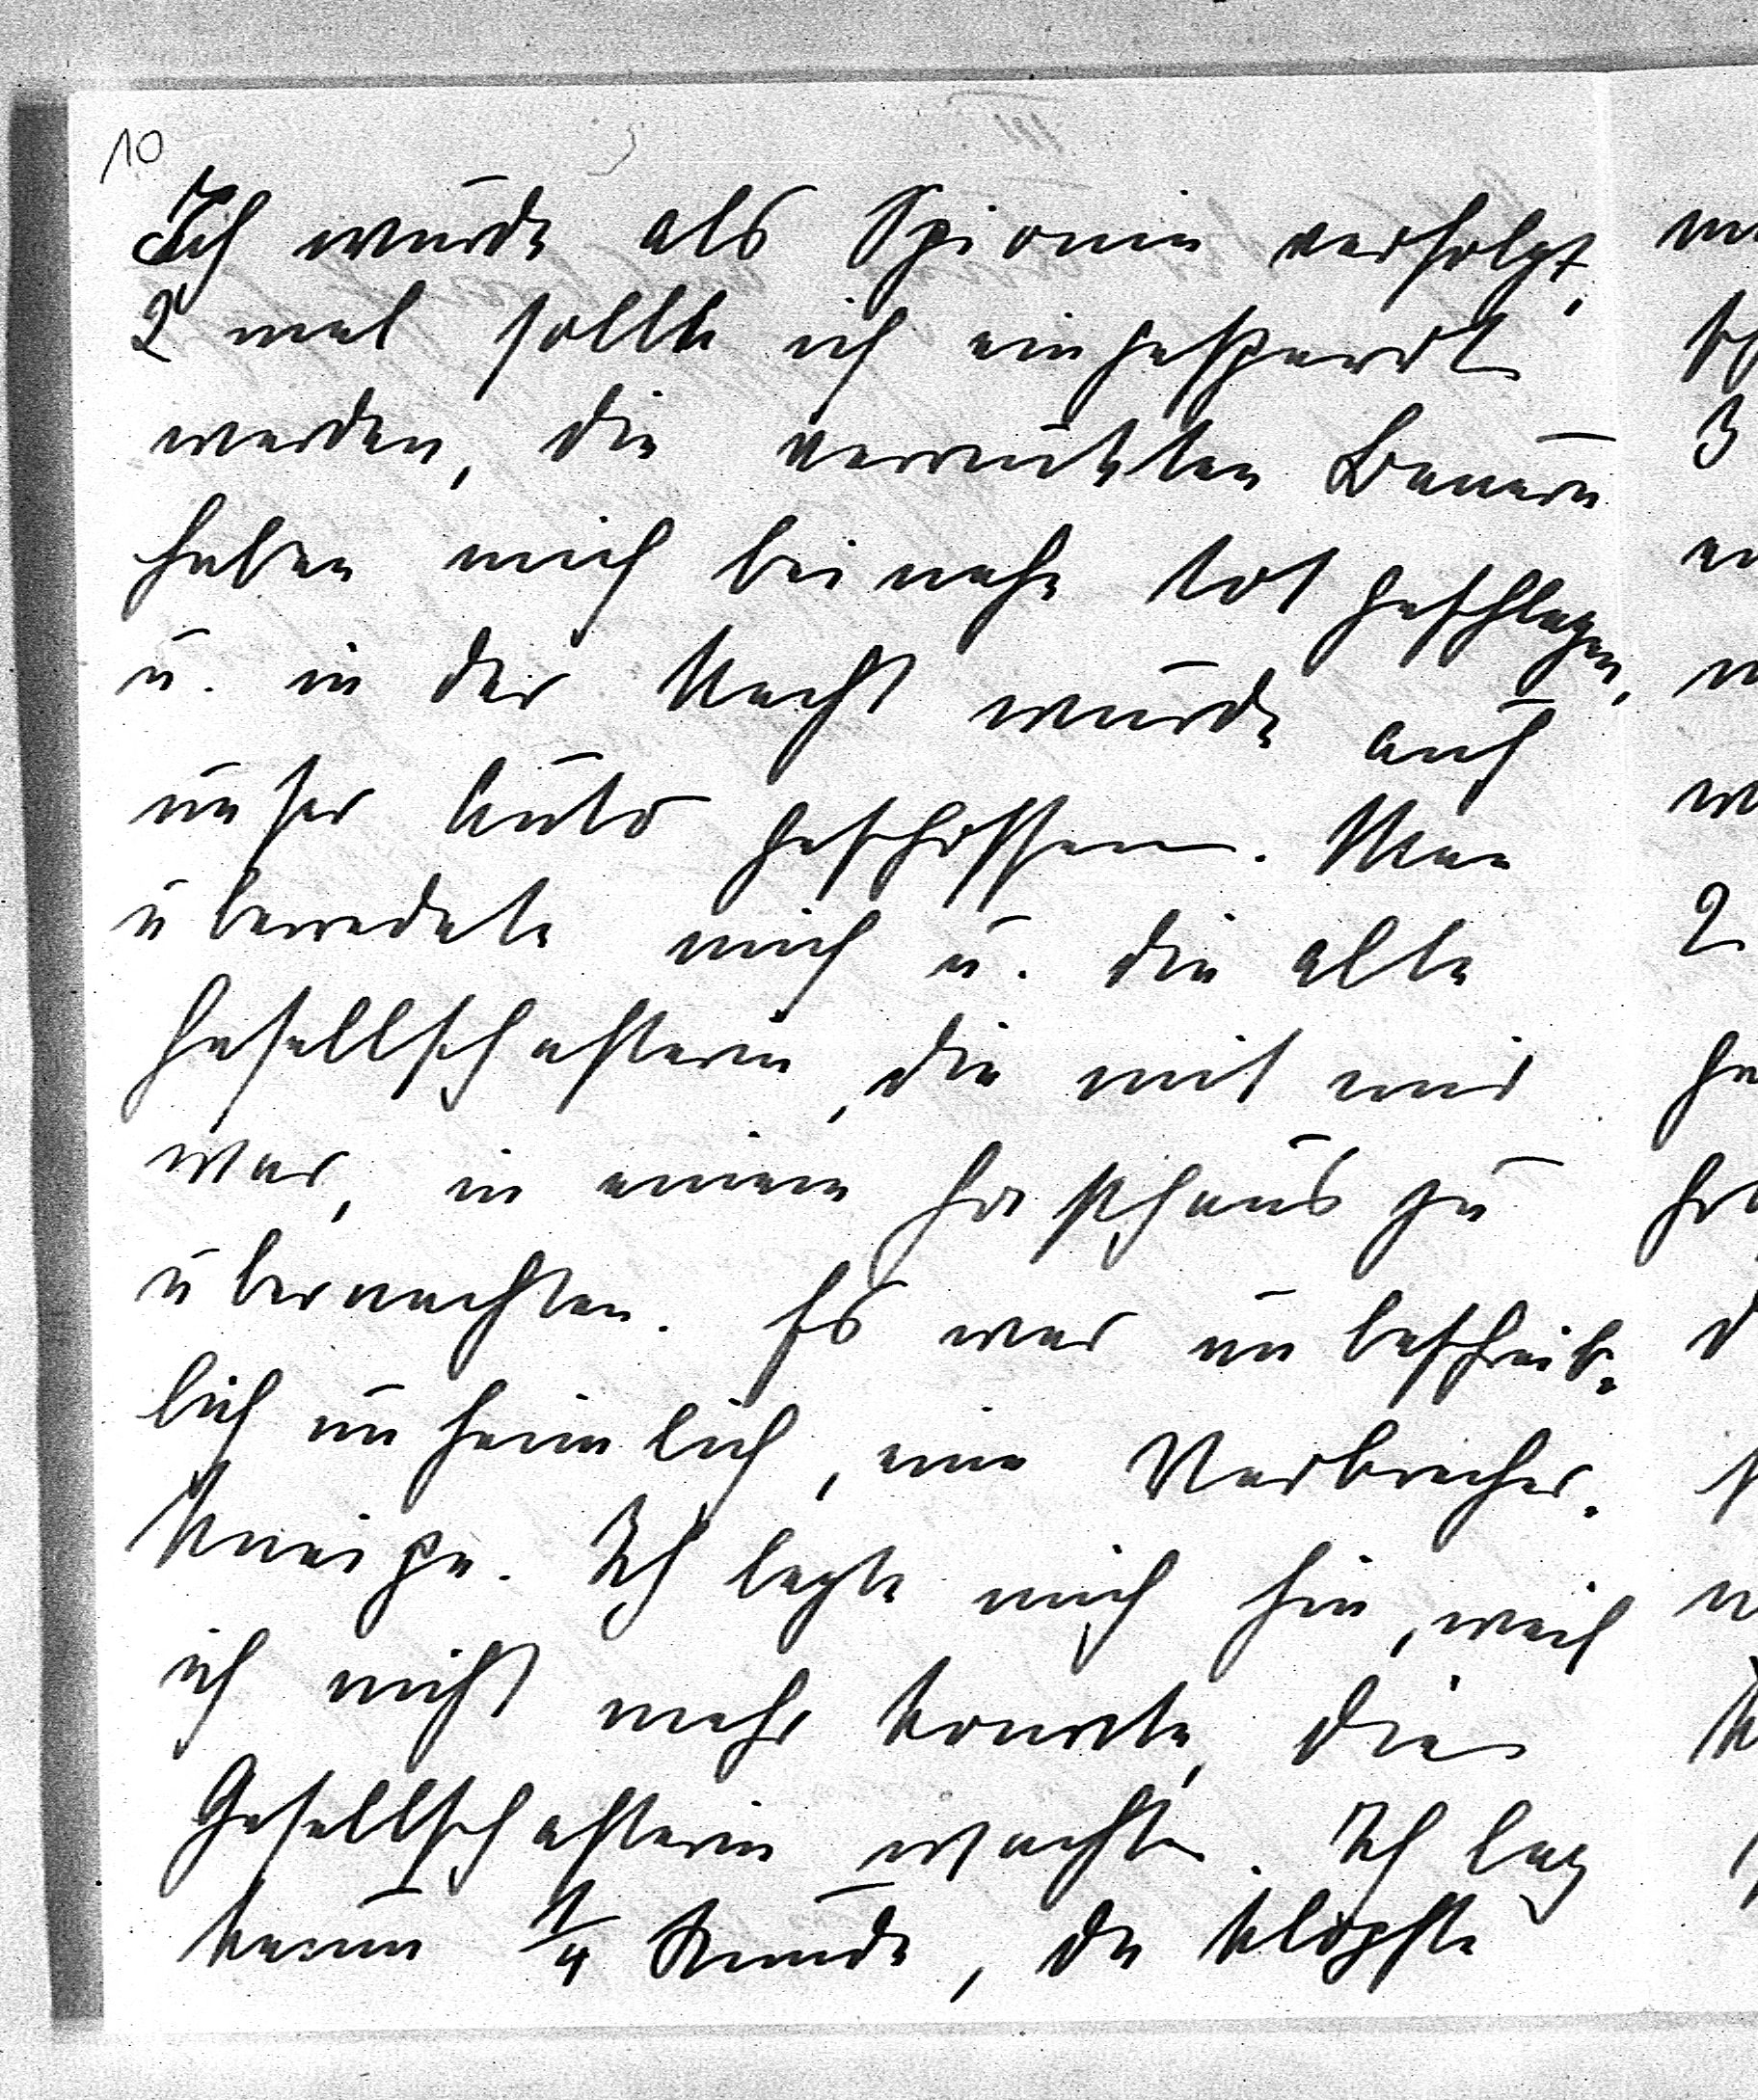 10
Ich wurde als Spionin verfolgt,
2 mal sollte ich eingesperrt
werden, die verrückten Bauern
haben mich beinahe tot geschlagen,
u. in der Nacht wurde auf
unser Auto geschossen. Man
überredete mich u. die alte
Gesellschafterin, die mit mir
war, in einem Gasthaus zu
übernachten. Es war unbeschreib-
lich unheimlich, eine Verbrecher-
kneipe. Ich legte mich hin, weil
ich nicht mehr konnte, die
Gesellschafterin wachte. Ich lag
kaum 1/4 Stunde, da klopfte